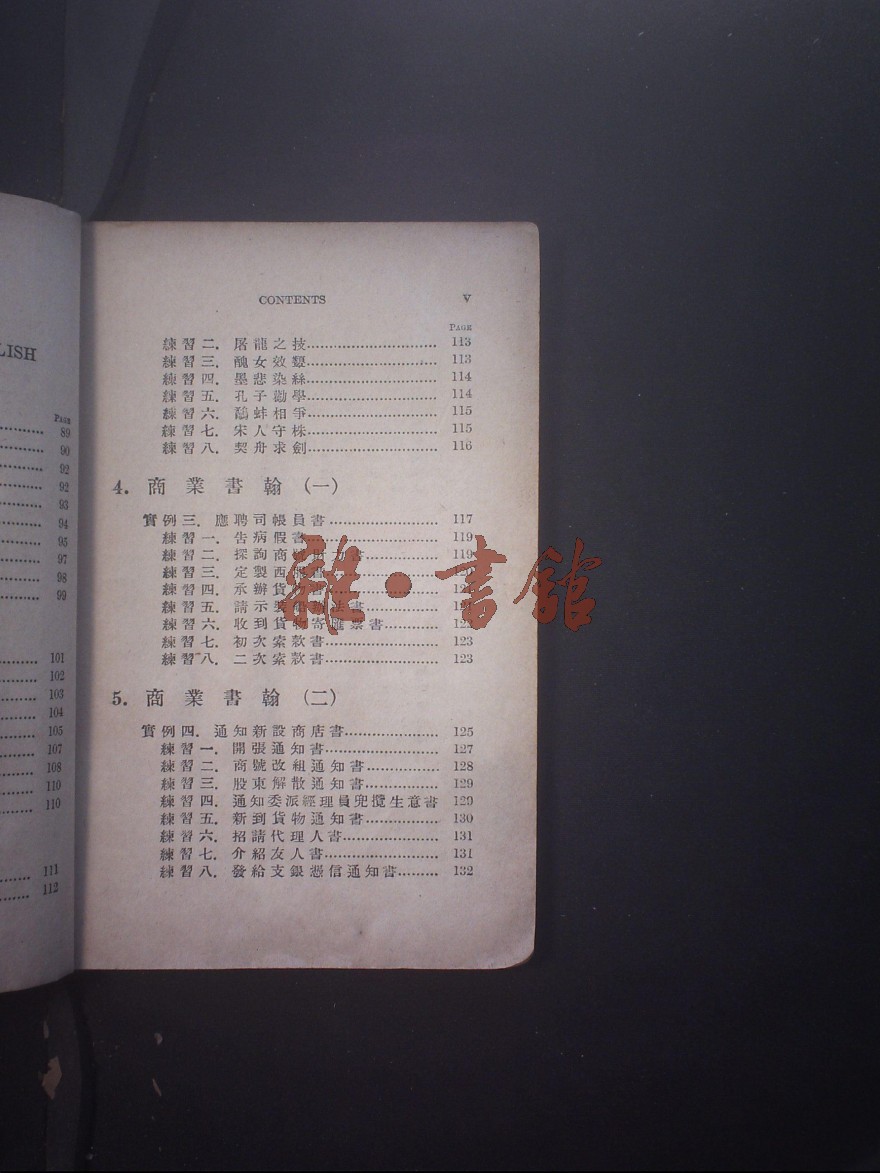 LISH
PAGE
89
90
92
92
93
94
95
97
98
99
101
102
103
104
105
107
108
110
110
111
112
CONTENTS V
PAGE
練習二. 屠龍之技 113
練習三. 醜女效顰 113
練習四. 墨悲染絲 114
練習五. 孔子勸學 114
練習六. 鷸蚌相爭 115
練習七. 宋人守株 115
練習八. 契舟求劍 116
4. 商業書翰 (一)
實例三. 應聘司帳員書 117
練習一. 告病假書 119
練習二. 探詢商 力書 119
練習三. 定製西
練習四. 承辦貨物書
練習五. 請示裝 法書
練習六. 收到貨物寄匯票書
練習七. 初次索款書 123
練習八. 二次索款書 123
5. 商業書翰 (二)
實例四. 通知新設商店書 125
練習一. 開張通知書 127
練習二. 商號改組通知書 128
練習三. 股東解散通知書 129
練習四. 通知委派經理員兜攬生意書 129
練習五. 新到貨物通知書 130
練習六. 招請代理人書 131
練習七. 介紹友人書 131
練習八. 發給支銀憑信通知書 132
雜·書館